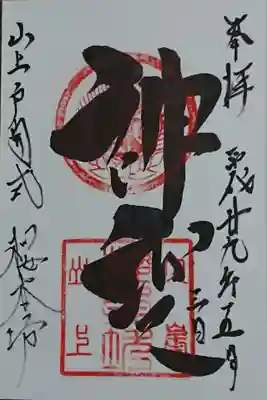 奉拝
平成廿九年五月
三日
神變
山上戸開式
櫻本坊